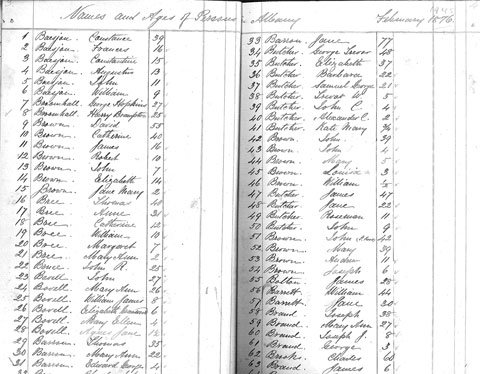 Names and Ages of Persons
1 Baesjou Constance 39
2 Baesjou Frances 16
3 Baesjou Constantine 15
4 Baesjou Augustus 13
5 Baesjou John 11
6 Baesjou William 9
7 Bromhall George Hopkins 27
8 Bromhall Henry 25
9 Brown David 55
10 Brown Catherine 40
11 Brown James 16
12 Brown Robert 10
13 Brown John 7
14 Brown Elizabeth 14
15 Brown Jane Mary 2
16 Bree Thomas 40
17 Bree Anne 31
18 Bree Catherine 12
19 Bree William 10
20 Bree Margaret 7
21 Bree Mary Ann 2
22 Bruce John R. 25
23 Bovell John 27
24 Bovell Mary Ann 26
25 Bovell William James 8
26 Bovell Elizabeth 6
27 Bovell Mary Ellen 4
28 Bovell Jane
29 Barron Thomas 35
30 Barron Mary Ann 22
31 Barron Edward George 4
Albany February 1876.
33 Barron Jane 77
34 Butcher George Trevor 48
35 Butcher Elizabeth 37
36 Butcher Barbara 22
37 Butcher Samuel George 21
38 Butcher Trevor W. 5
39 Butcher John C. 4
40 Butcher Alexander C. 2
41 Butcher Kate Mary
42 Brown John 39
43 Brown John 4
44 Brown Mary 5
45 Brown Louisa 3
46 Brown William
47 Butcher James 47
48 Butcher Jane 22
49 Butcher Roseman 11
50 Butcher John 9
51 Brown John 42
52 Brown Mary 39
53 Brown Andrew 11
54 Brown Joseph 6
55 Bolton James 28
56 Barrett William 44
57 Barrett Jane 30
58 Braud Joseph 38
59 Braud Mary Ann 27
60 Braud Joseph J. 8
61 Braud George 3
62 Brooks Charles 60
63 Braud James 6